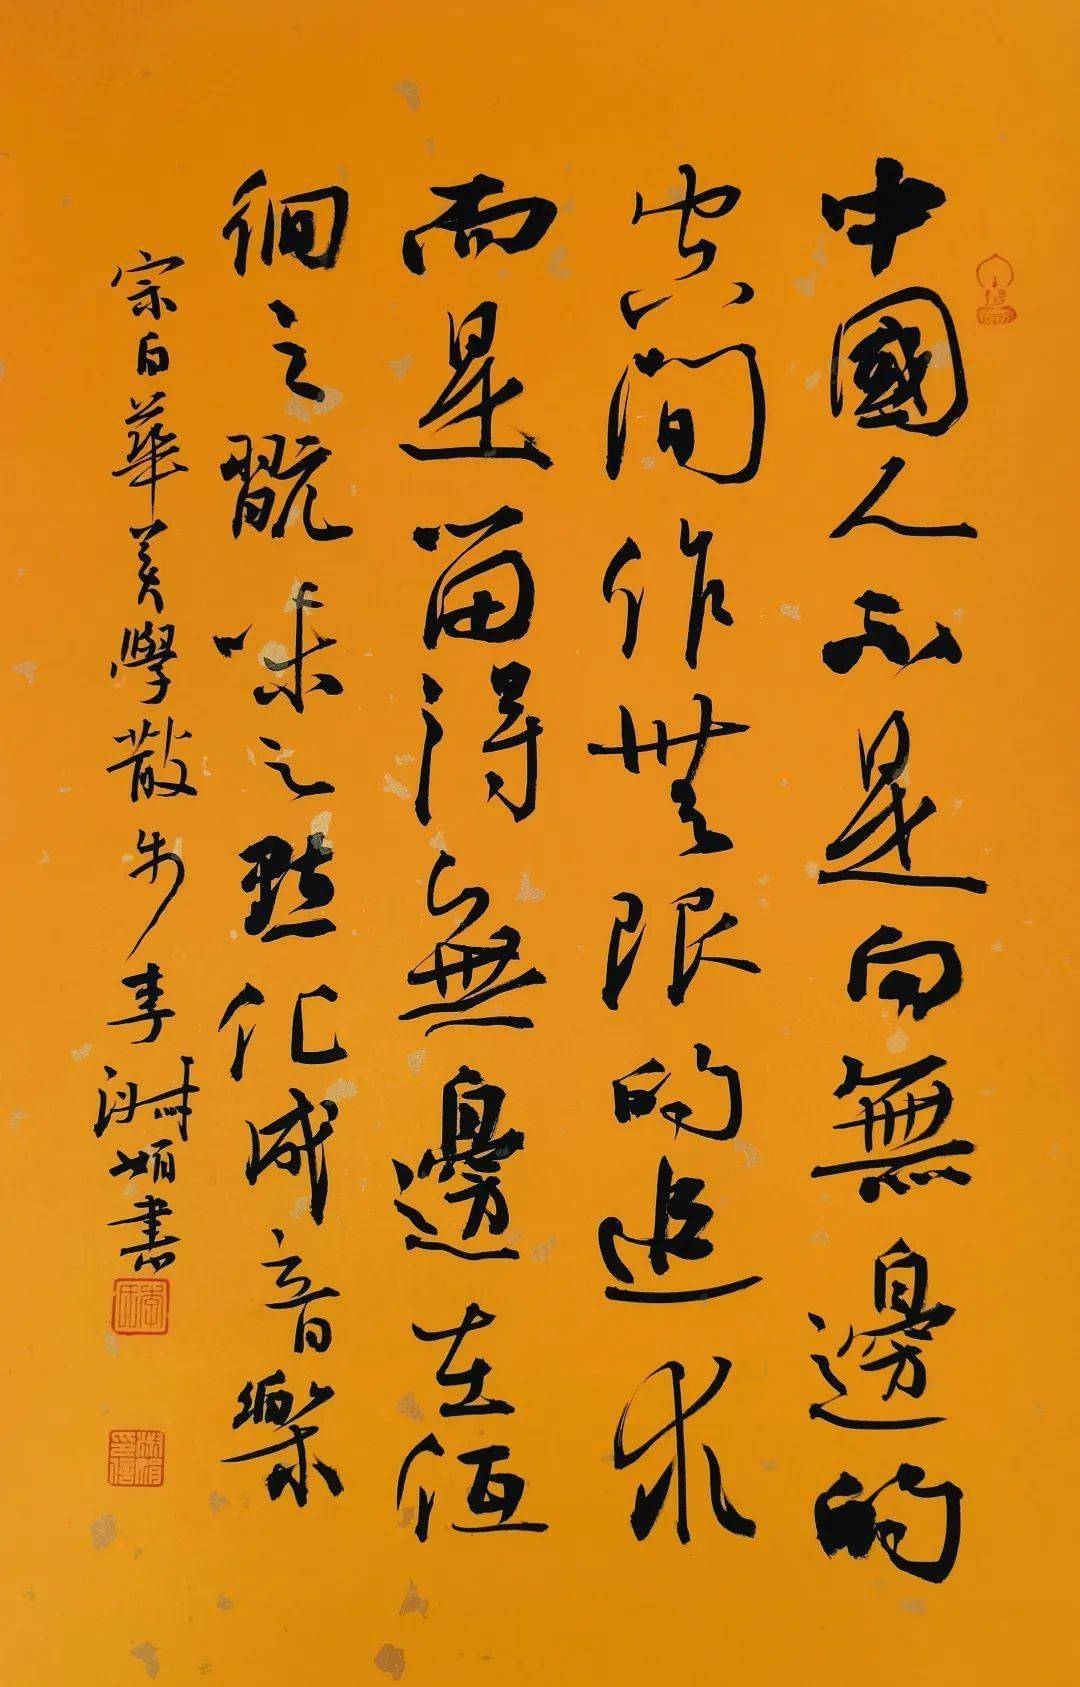 中國人不是向無邊的
空間作無限的追求
而是留得無邊在低
徊之翫味之點化成音樂
宗白華美學散步 李淑書